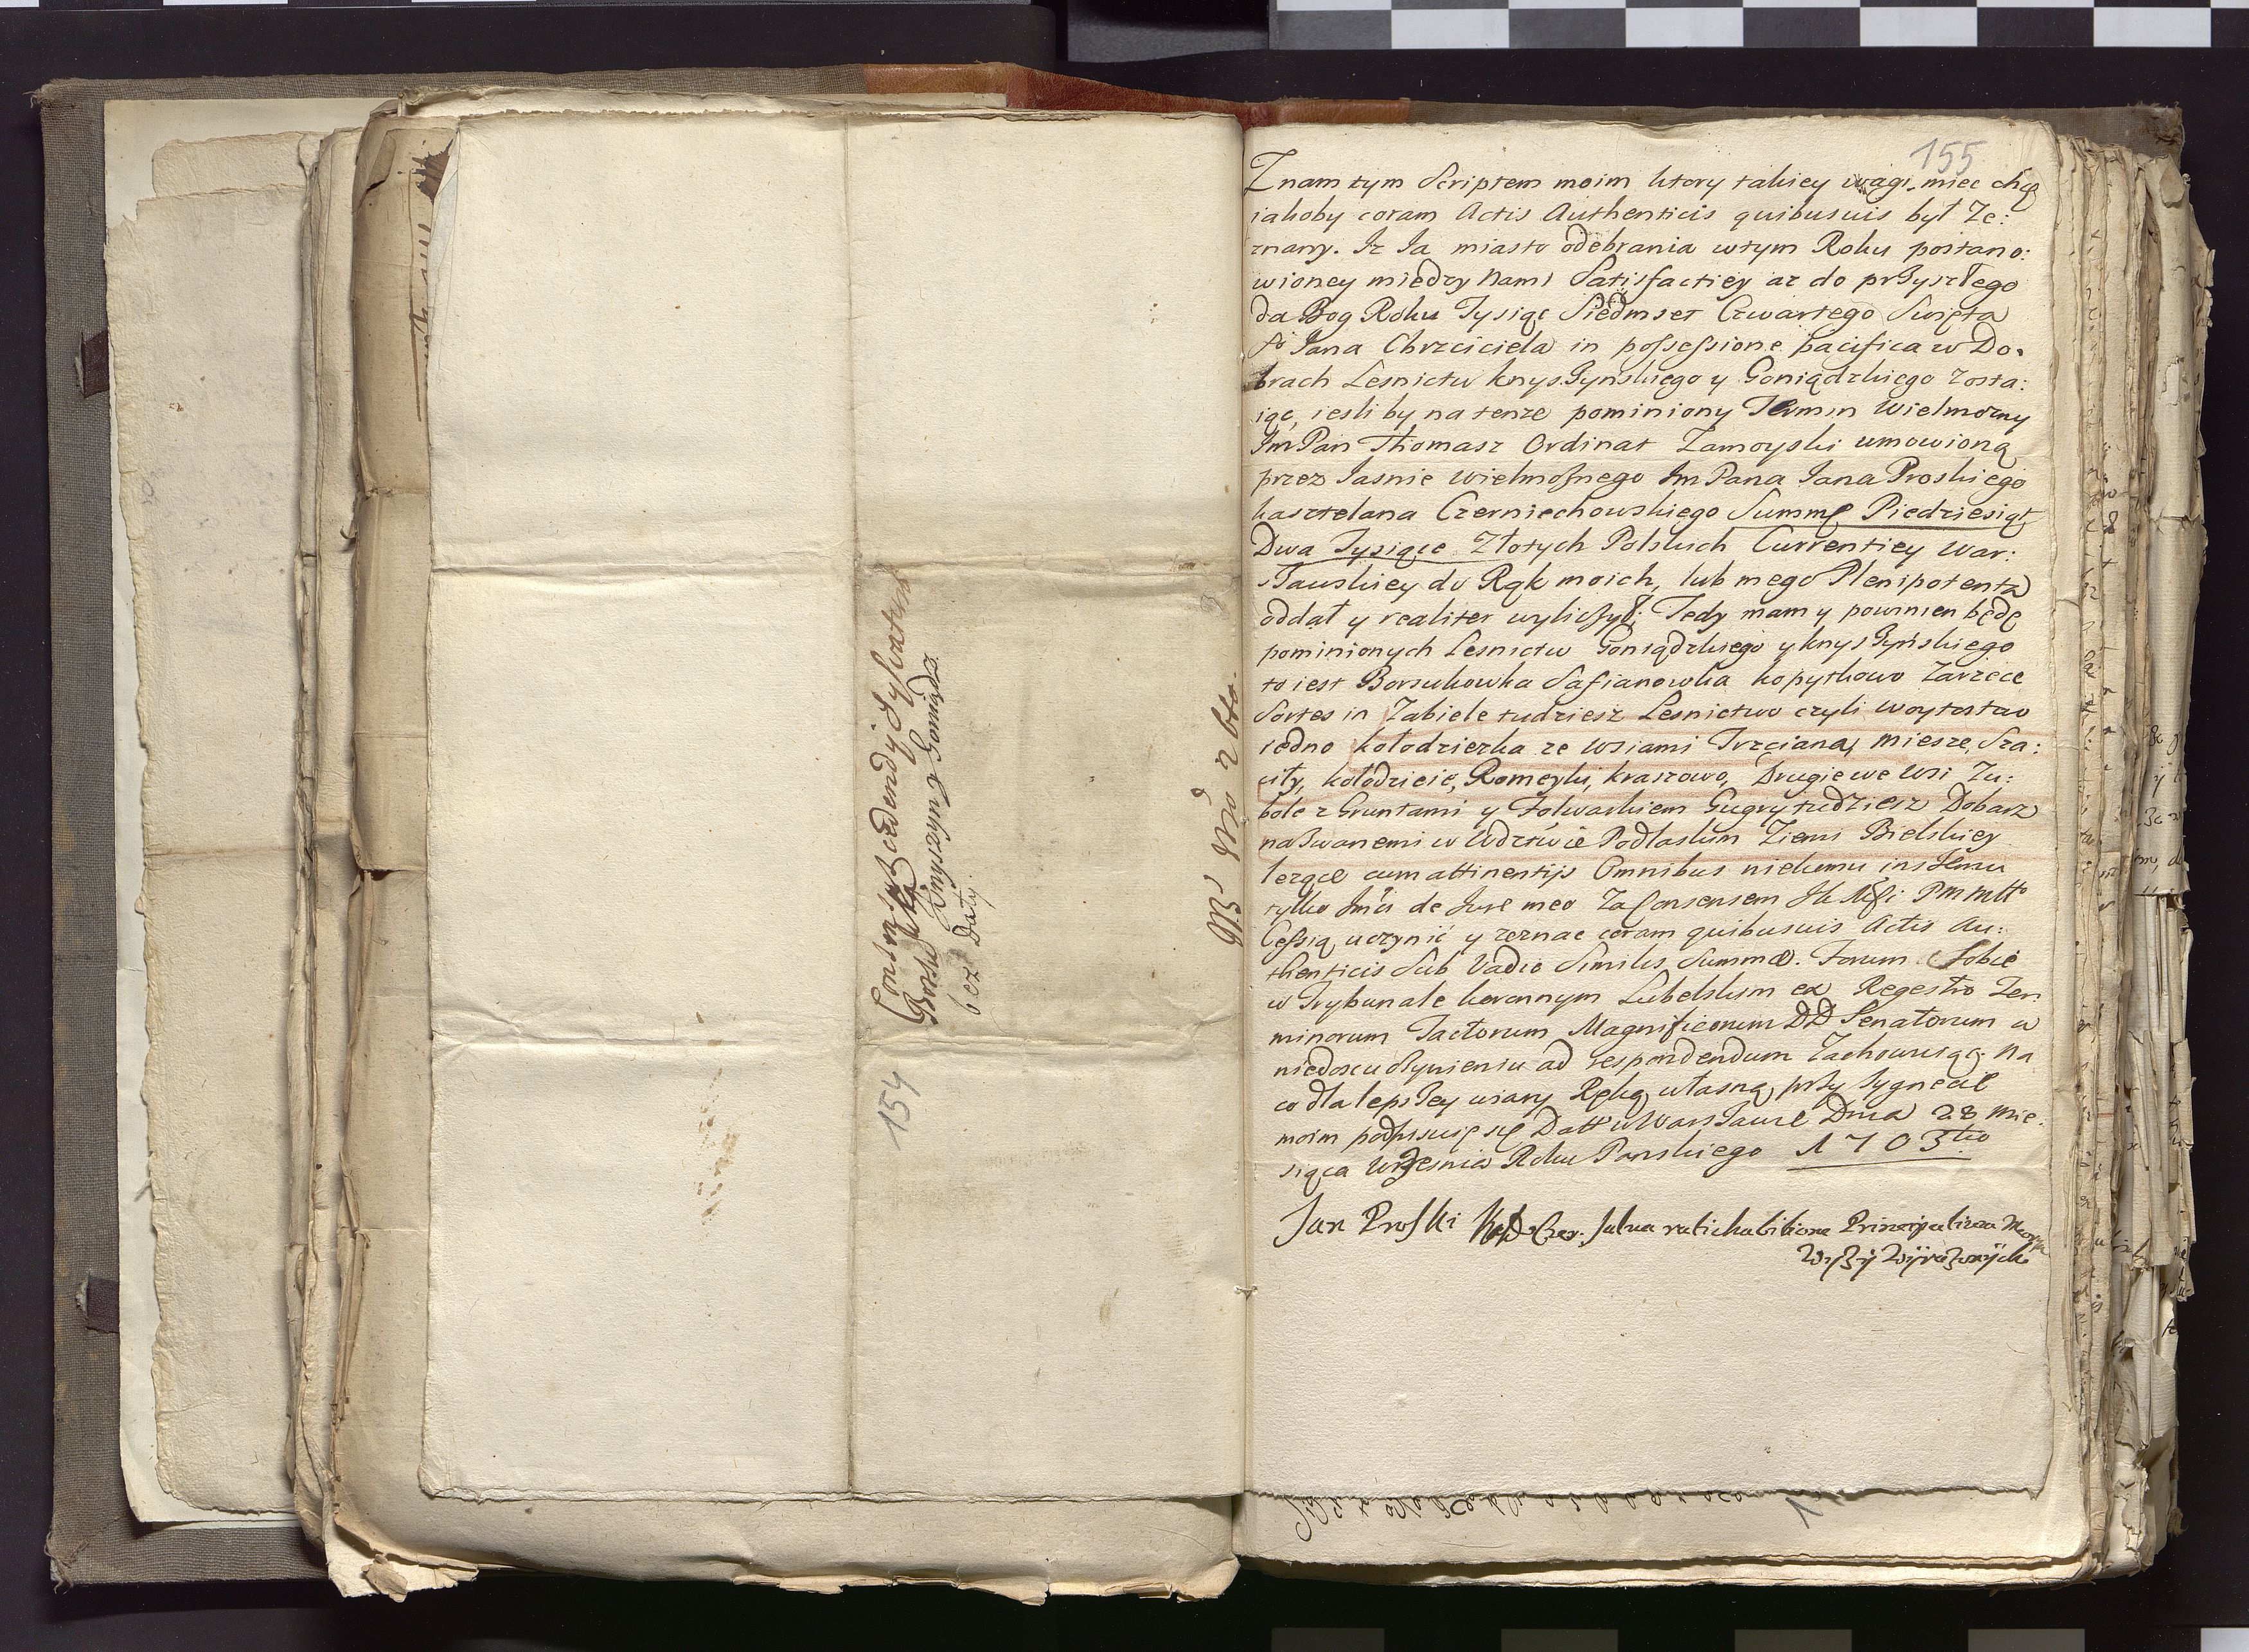 Consens Cedendj Sylvatus
Knyszyn y Goniądz
bez Daty.
154
155
Znam tym Scriptem moim ktory takiey wagi miec chcę
iakoby coram Actis Authenticis quibusuis był Ze:
znany. Iz Ia miasto odebrania wtym Roku postano:
wioney miedzy nami Satisfactiey az do przyszłego
da Bog Roku Tysiąc Siedmset Czwartego Swięta
So Jana Chrzciciela in possessione pacifica w Do:
brach Lesnictw Knyszynskiego y Goniądzkiego zosta:
iąc, iesli by na tenze pominiony Termin Wielmozny
Im Pan Thomasz Ordinat Zamoyski umowioną
przez Iasnie wielmosnego Im Pana Iana Proskiego
kasztelana Czerniechowskiego Summę Piedziesiąt
Dwa Tysiące Złotych Polskich Currentiey War:
szauskiey do Rąk moich, lub mego Plenipotenta
oddał y realiter wyliczył; Tedy mam y powinien będę
pominionych Lesnictw Goniądzkiego y knyszyńskiego
to iest Borsukowka Safianowka kopytkowo Zarzece
Sortes in Zabiele tudziesz Lesnictwo czyli woytostwo
iedno kołodziezka ze wsiami Trzciana, miesze, Sza:
city, kołodzieie, Romeyki, kraszowo, Drugie we wsi Zu:
bole z Gruntami y Folwarkiem Gugny tudziesz Dobarz
nazwanemi w Wdztwie Podlaskim Ziemi Bielskiey
lezące cum attinentijs Omnibus nikomu inszemu
tylko Imci de Iure meo Za Consensem
Cessią uczynić y zeznac coram quibusuis Actis Au:
thenticis Sub Vadio Similis Summæ. Forum Sobie
w Trybunale koronnym Lubelskim ex Regestro Ter:
minorum Tactorum Magnificorum DD Senatorum w
niedosicuczynieniu ad respondendum Zachowuiąc. Na
co dla lepszey wiary Ręką własną przy sygnecie
moim podpisuię się Datt w Warszawie Dnia 28 mie:
siąca Wrzesnia Roku Panskiego 1703tio
Jan Proski Czer: salva ratihabitione Principalium
wyzy wyrazonych